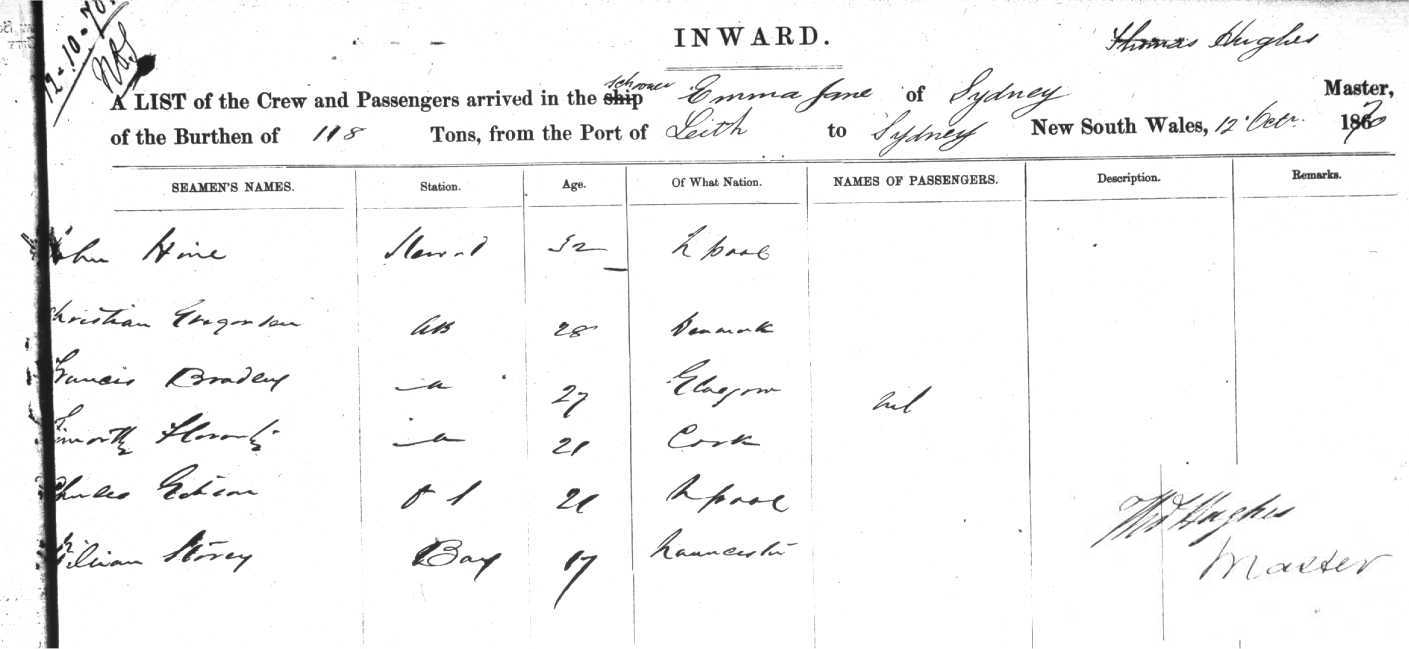 12-10-70
INWARD.
Thomas Hughes
A LIST of the Crew and Passengers arrived in the ship schooner Emma Jane of Sydney Master,
of the Burthen of 118 Tons, from the Port of Leith to Sydney New South Wales, 12 Octr. 1870
SEAMEN'S NAMES. Station. Age. Of What Nation. NAMES OF PASSENGERS. Description. Remarks.
John Hine Steward 32 L'pool
Christian AB 28 Denmark
Francis 27 Glasgow nil
Timothy 21 Cork
Charles O S 21 L'pool
William Storey Boy 17 Launceston
Thos Hughes
Master